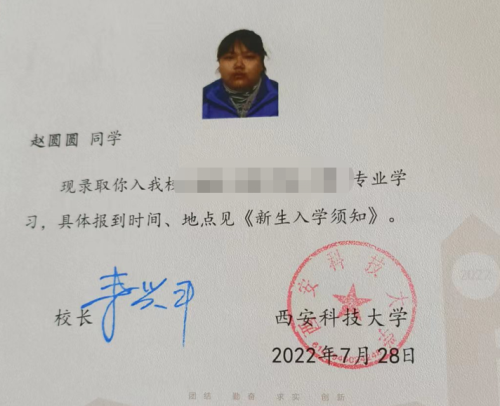 赵圆圆 同学
现录取你入我校 专业学
习，具体报到时间、地点见《新生入学须知》。
校长
西安科技大学
西安科技大学
2022年7月28日
2022
团结 勤奋 求实 创新